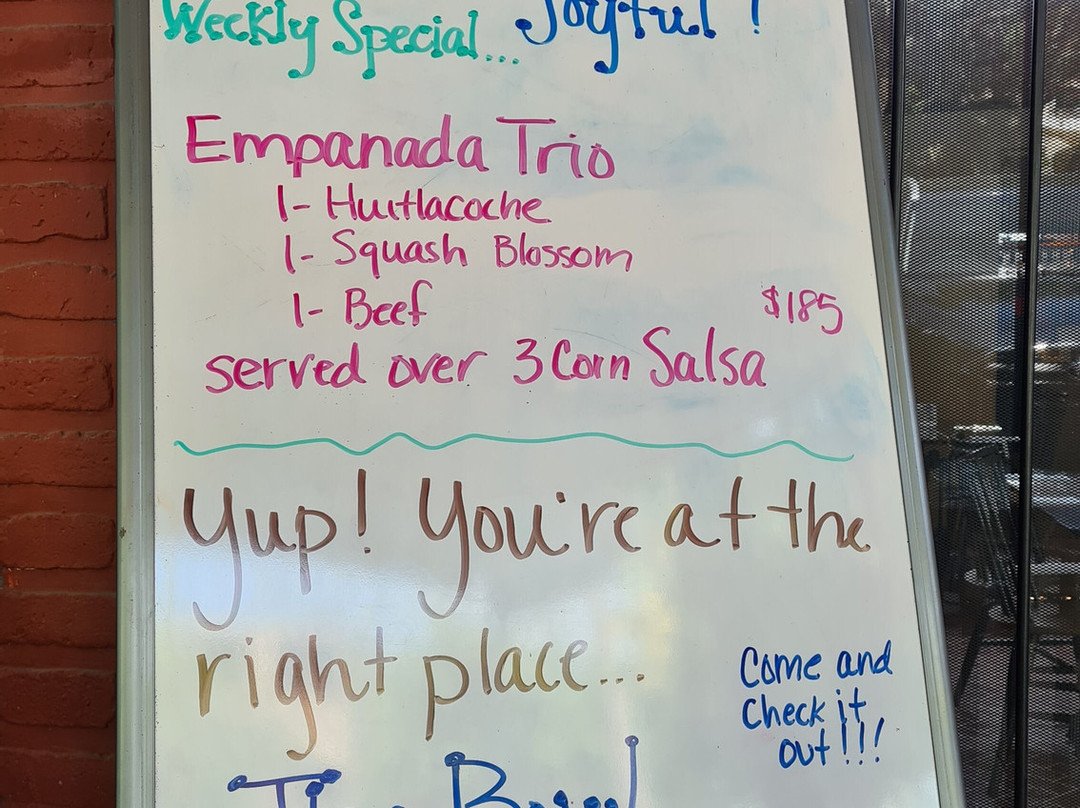 Weekly Special... Joyful!
Empanada Trio
1- Huitlacoche
1- Squash Blossom
1- Beef
$185
served over 3 Corn Salsa
Yup! You're at the
right place...
Come and
Check it
out!!!